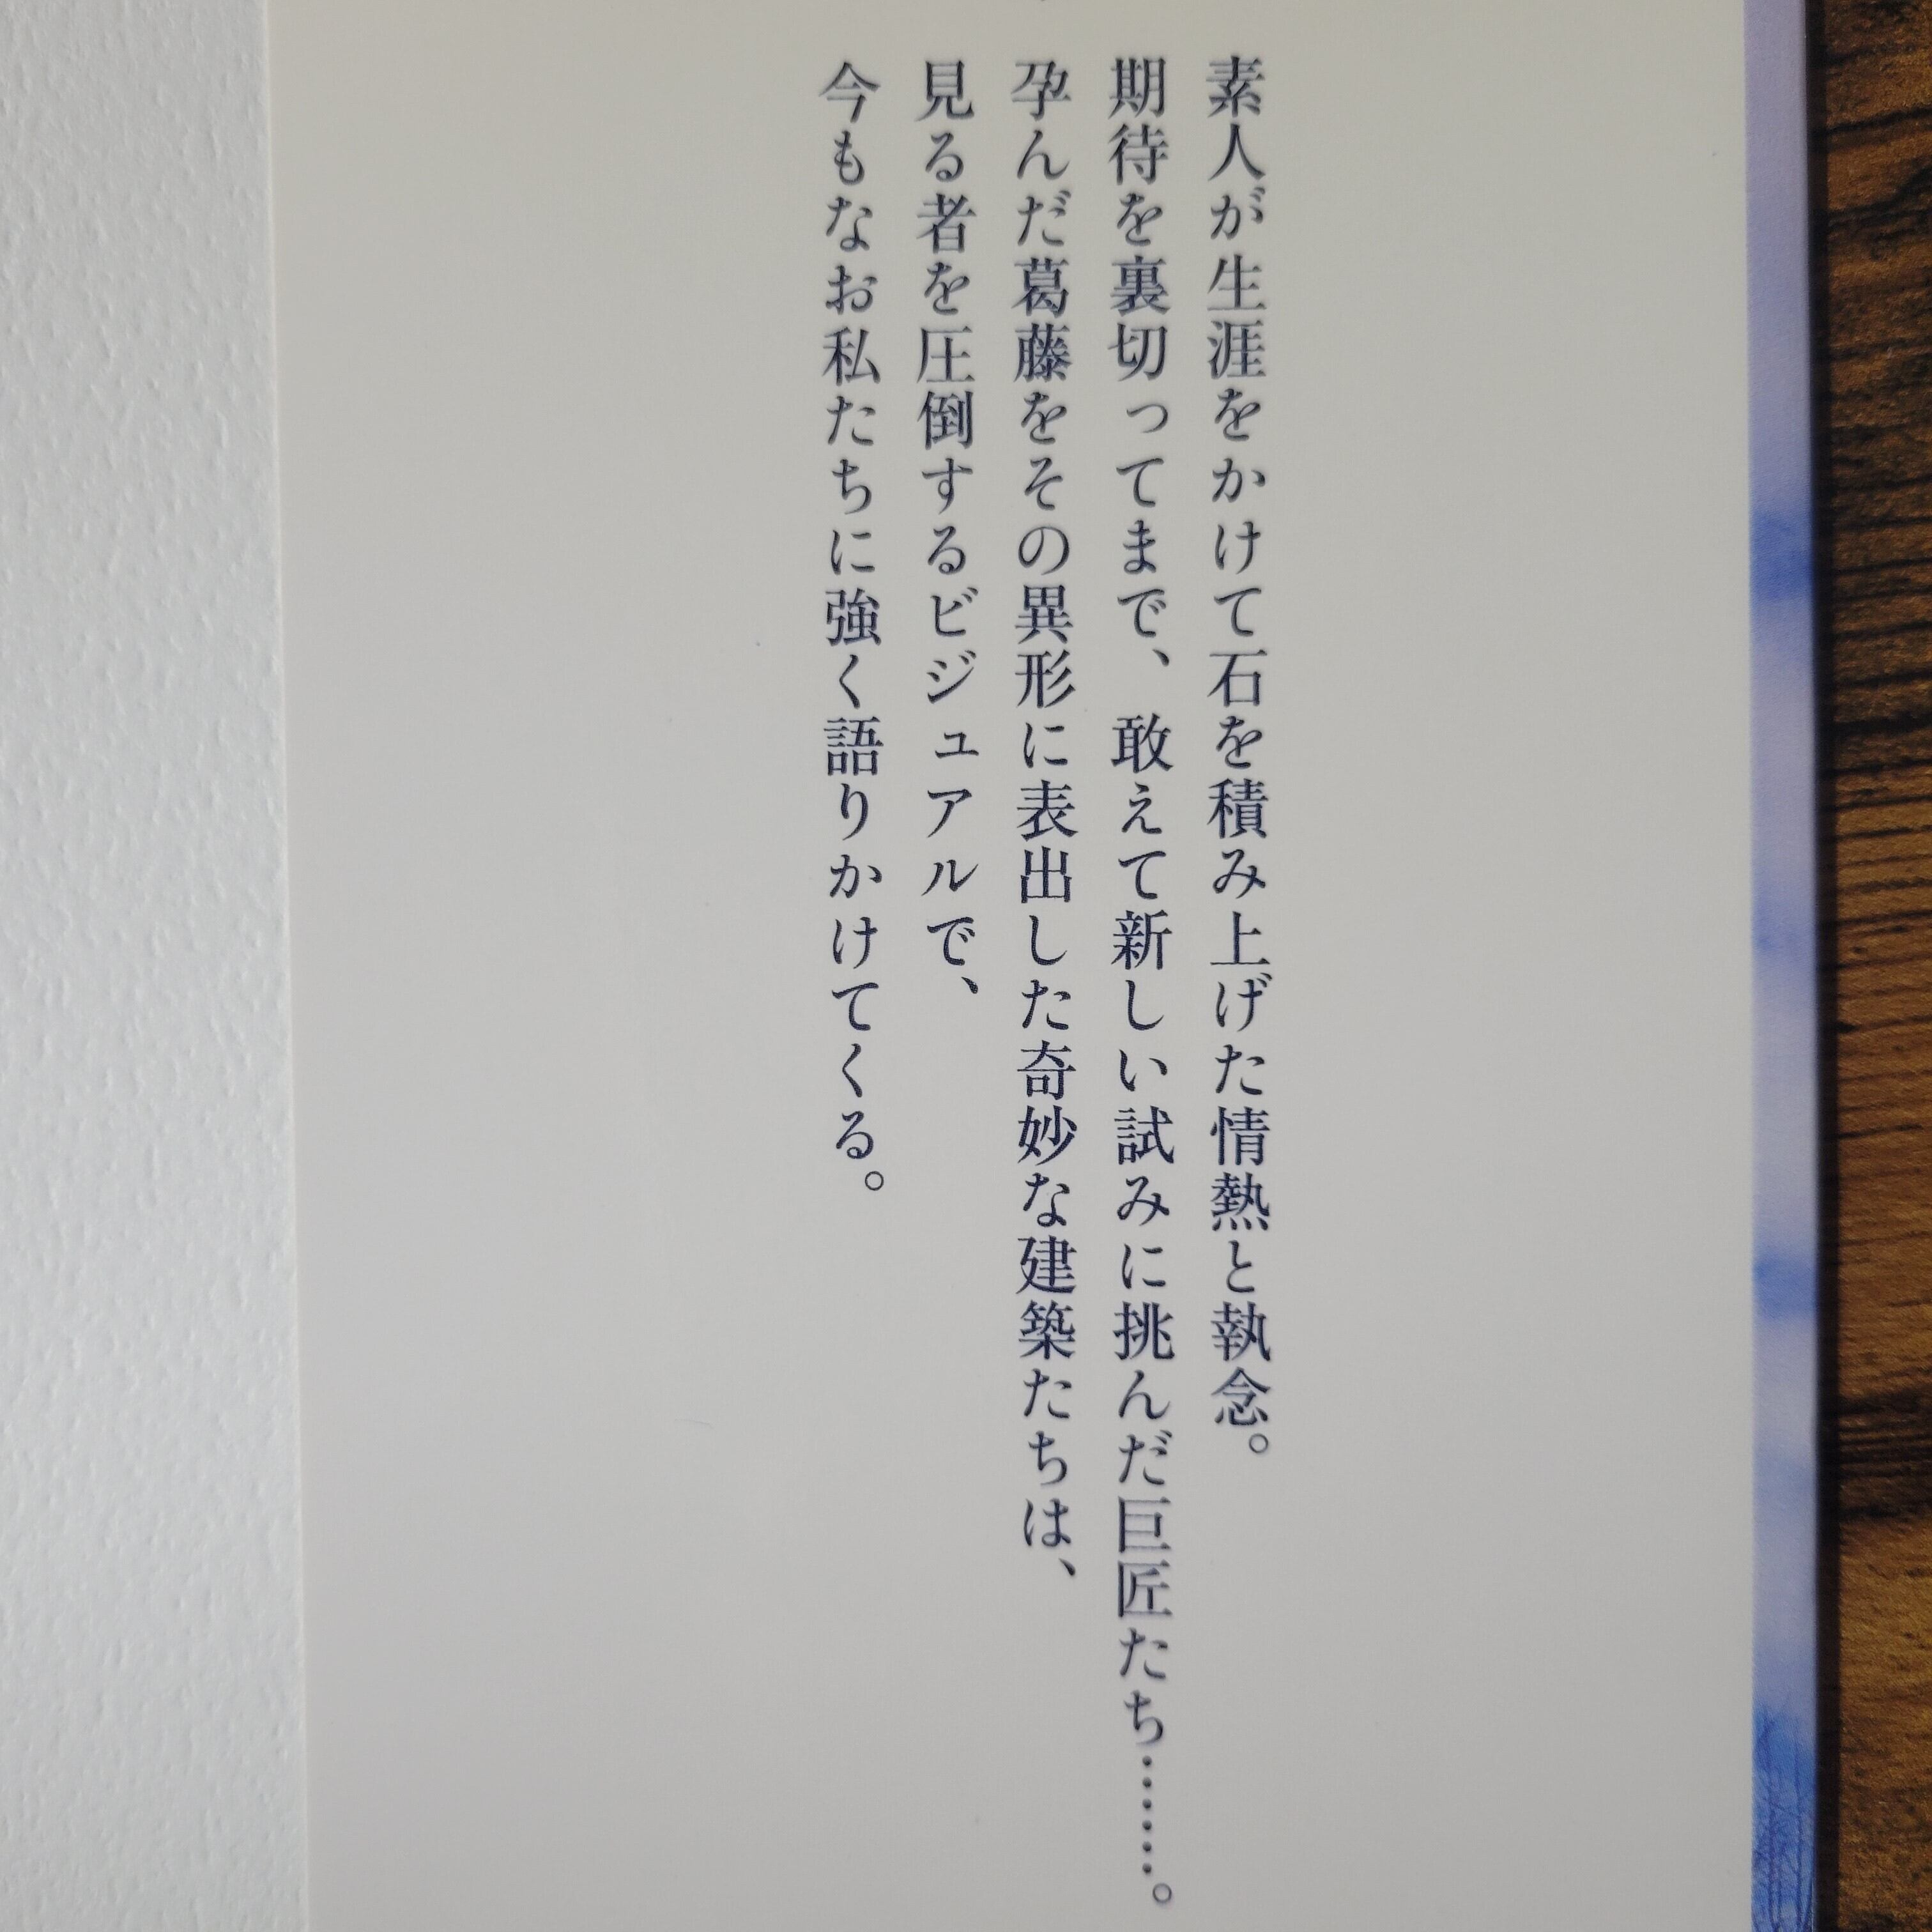 素人が生涯をかけて石を積み上げた情熱と執念。
期待を裏切ってまで、敢えて新しい試みに挑んだ巨匠たち……。
孕んだ葛藤をその異形に表出した奇妙な建築たちは、
見る者を圧倒するビジュアルで、
今もなお私たちに強く語りかけてくる。